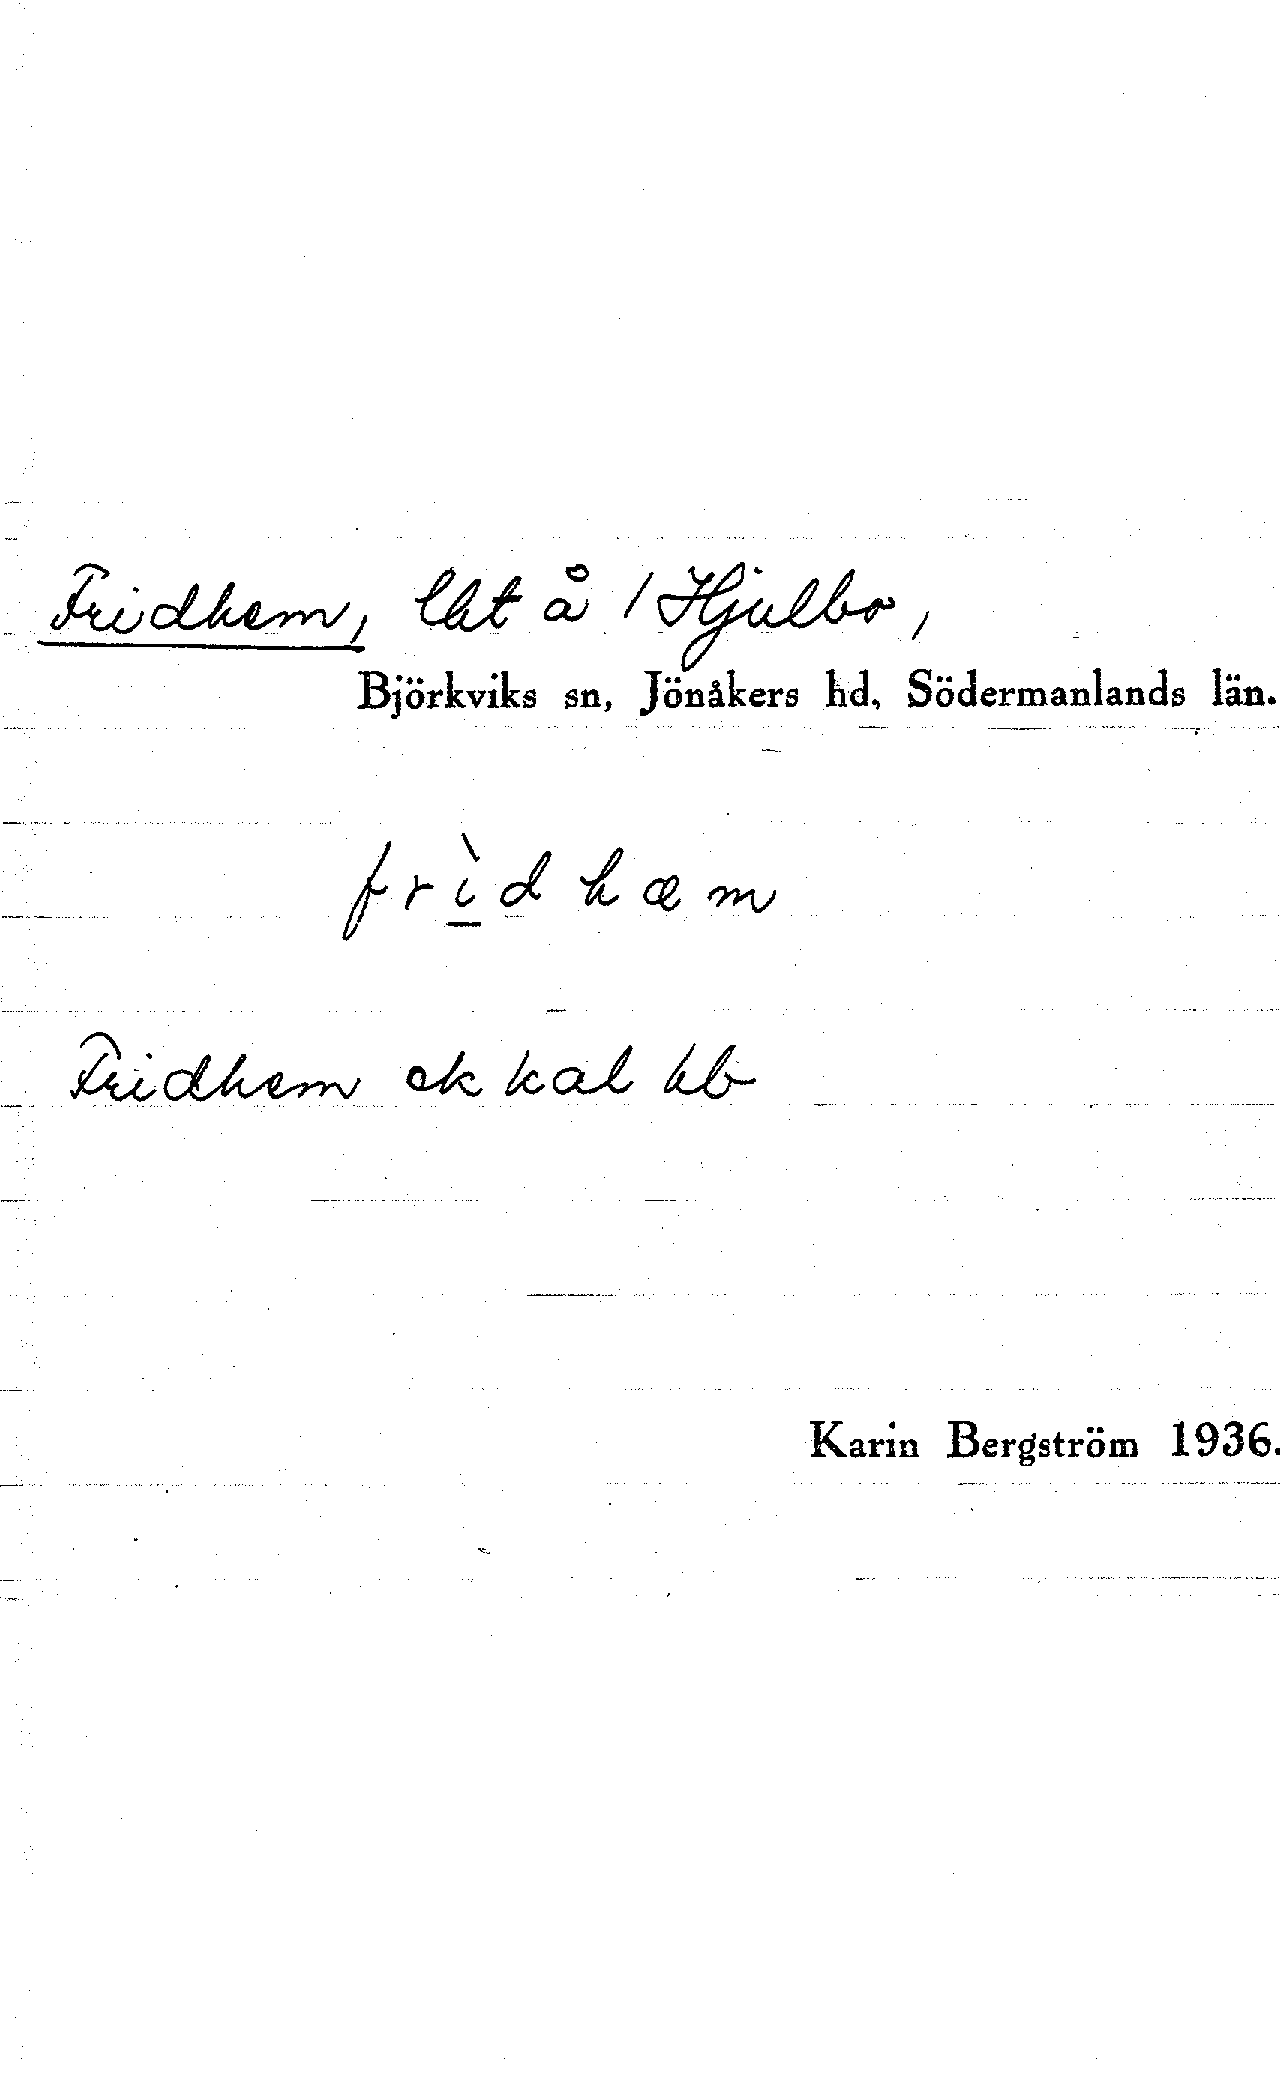 Fridhem, lht å 1 Hjulbo,
Björkviks sn, Jönåkers hd, Södermanlands län.
frìdhæm
Fridhem ek kal kb
Karin Bergström 1936.